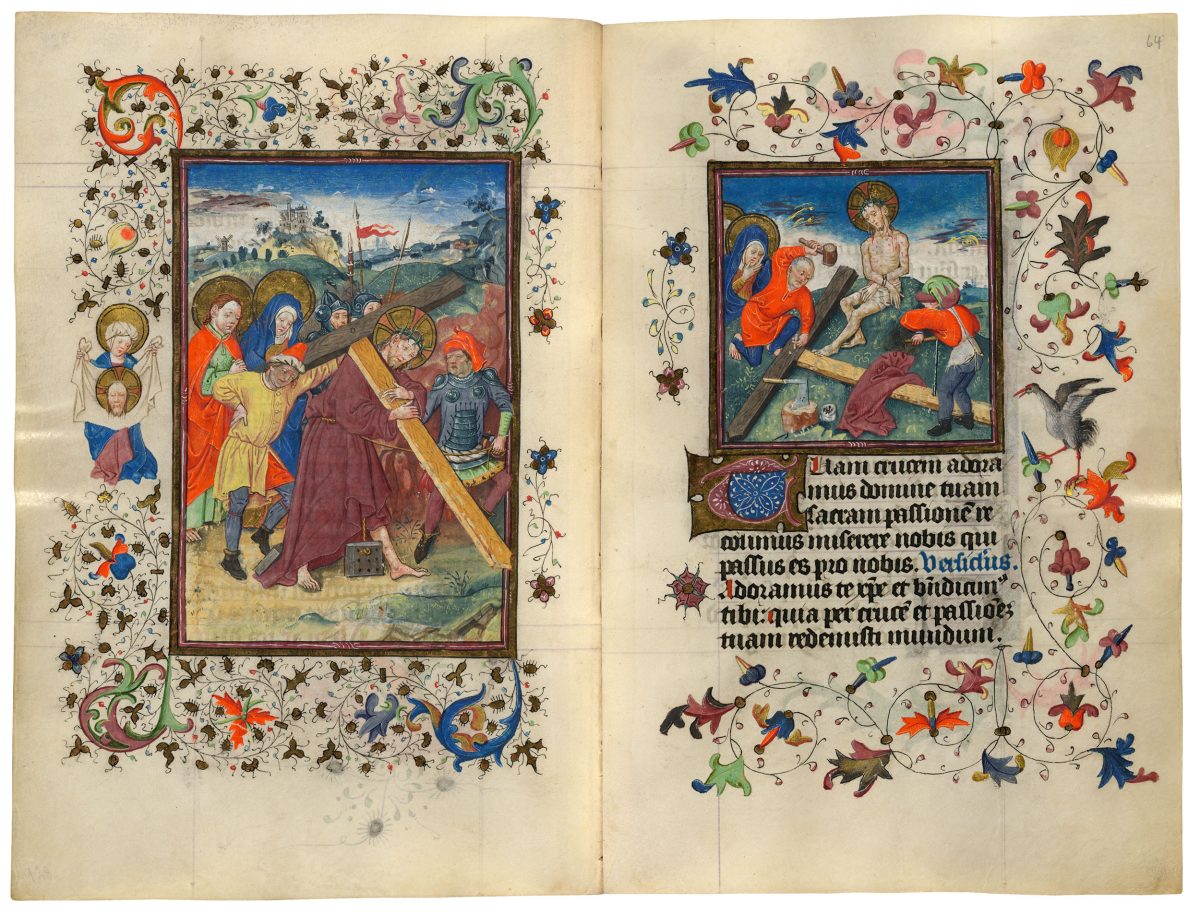 64
Tuam crucem adora
mus domine tuam
sacram passionē re
colimus miserere nobis qui
passus es pro nobis. Versiclus.
Adoramus te xp̄e et bn̄dicim⁹
tibi: quia per crucē et passioēȝ
tuam redemisti mundum.